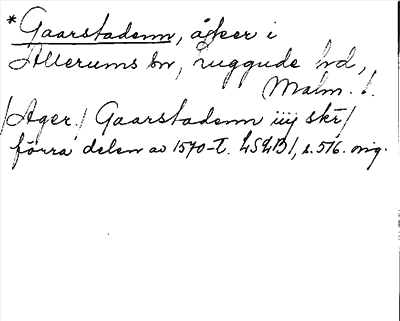 *Gaarstadenn, åker i
Allerums sn, Luggude hd,
Malm. l.
/Ager./ Gaarstadenn iiij skr/
förra delen av 1570-t. LSLB I, s. 516. orig.